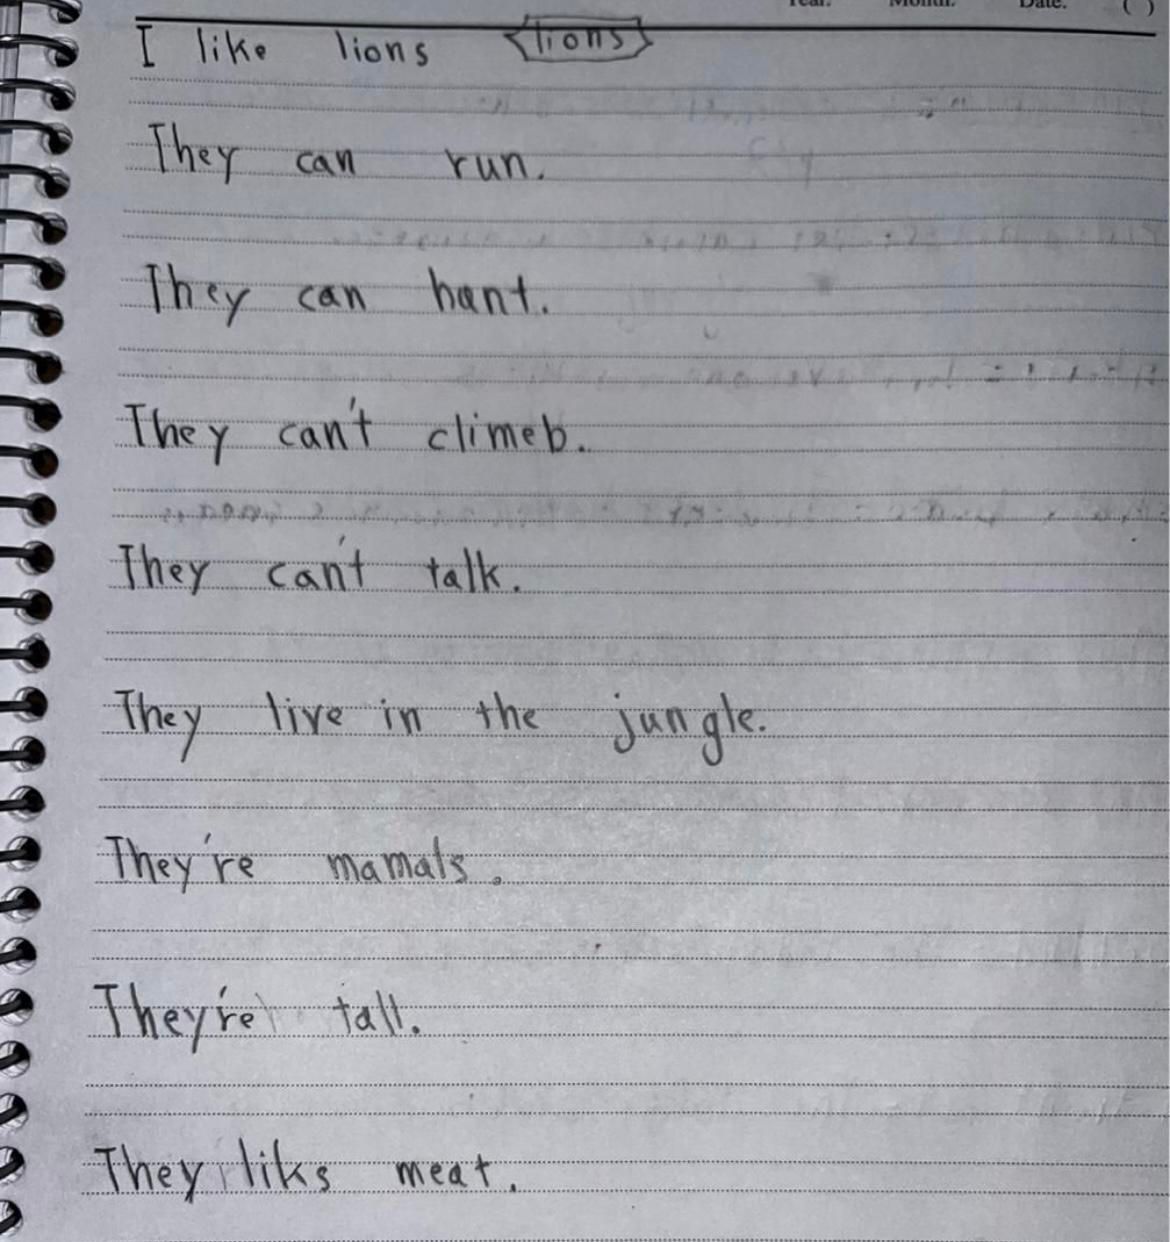 Year. Month. Date. ( )
I like lions lions
They can run.
They can hant.
They can't climeb.
They can't talk.
They live in the jungle.
They're mamals.
They're tall.
They liks meat.